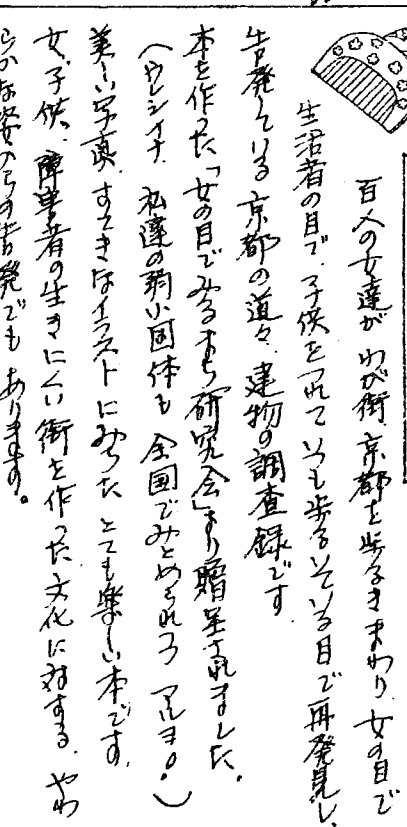 百人の女達が わが街 京都を歩るきまわり、女の目で
生活者の目で、子供をつれて いつも歩るいている目で再発見し、
告発している 京都の道々、建物の調査録です。
本を作った「女の目でみるまち研究会」より贈呈されました。
(ウレシイナ、私達の弱小団体も 全国でみとめられつつアルヨ!)
美しい写真、すてきなイラストにみちた とても楽しい本です。
女、子供、障害者の生きにくい街を作った文化に対する、やわ
らかな姿からの告発でもあります。